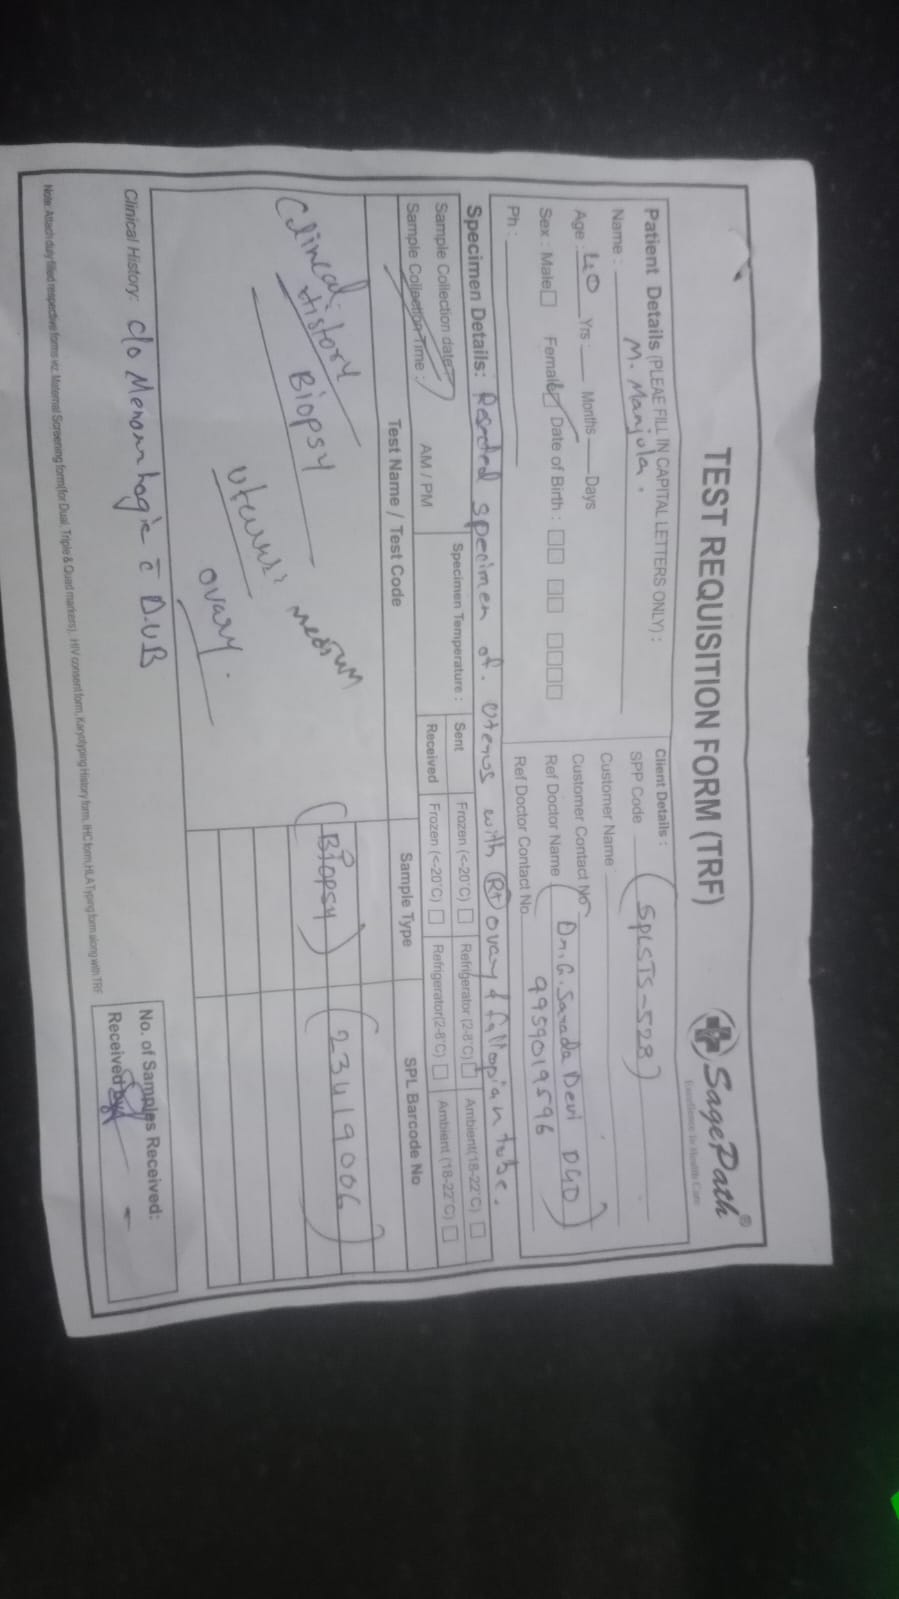 TEST REQUISITION FORM (TRF)
SagePath®
Excellence In Health Care
Patient Details (PLEAE FILL IN CAPITAL LETTERS ONLY) :
Name : M. Manjula.
Age : 40 Yrs : Months Days
Sex : Male Female Date of Birth :
Ph :
Client Details :
SPP Code (SPLSTS-528)
Customer Name :
Customer Contact No
Ref Doctor Name (Dr. G. Sarada Devi DGO)
Ref Doctor Contact No. 9959019596
Specimen Details: specimen of. Uterus with Rt ovary & fallopian tube.
Sample Collection date
Sample Collection Time : AM / PM
Specimen Temperature : Sent Frozen (<-20°C) Refrigerator (2-8°C) Ambient(18-22°C)
Received Frozen (<-20°C) Refrigerator(2-8°C) Ambient (18-22°C)
Test Name / Test Code Sample Type SPL Barcode No
Clinical History
Biopsy
Uterus
medium
ovary.
(Biopsy) (23419006)
Clinical History: c/o Menorrhagia c̄ D.U.B
No. of Samples Received:
Received By
Note: Attach duly filled respective forms viz. Maternal Screening form(for Dual, Triple & Quad markers), HIV consent form, Karyotyping History form, IHC form, HLA Typing form along with TRF